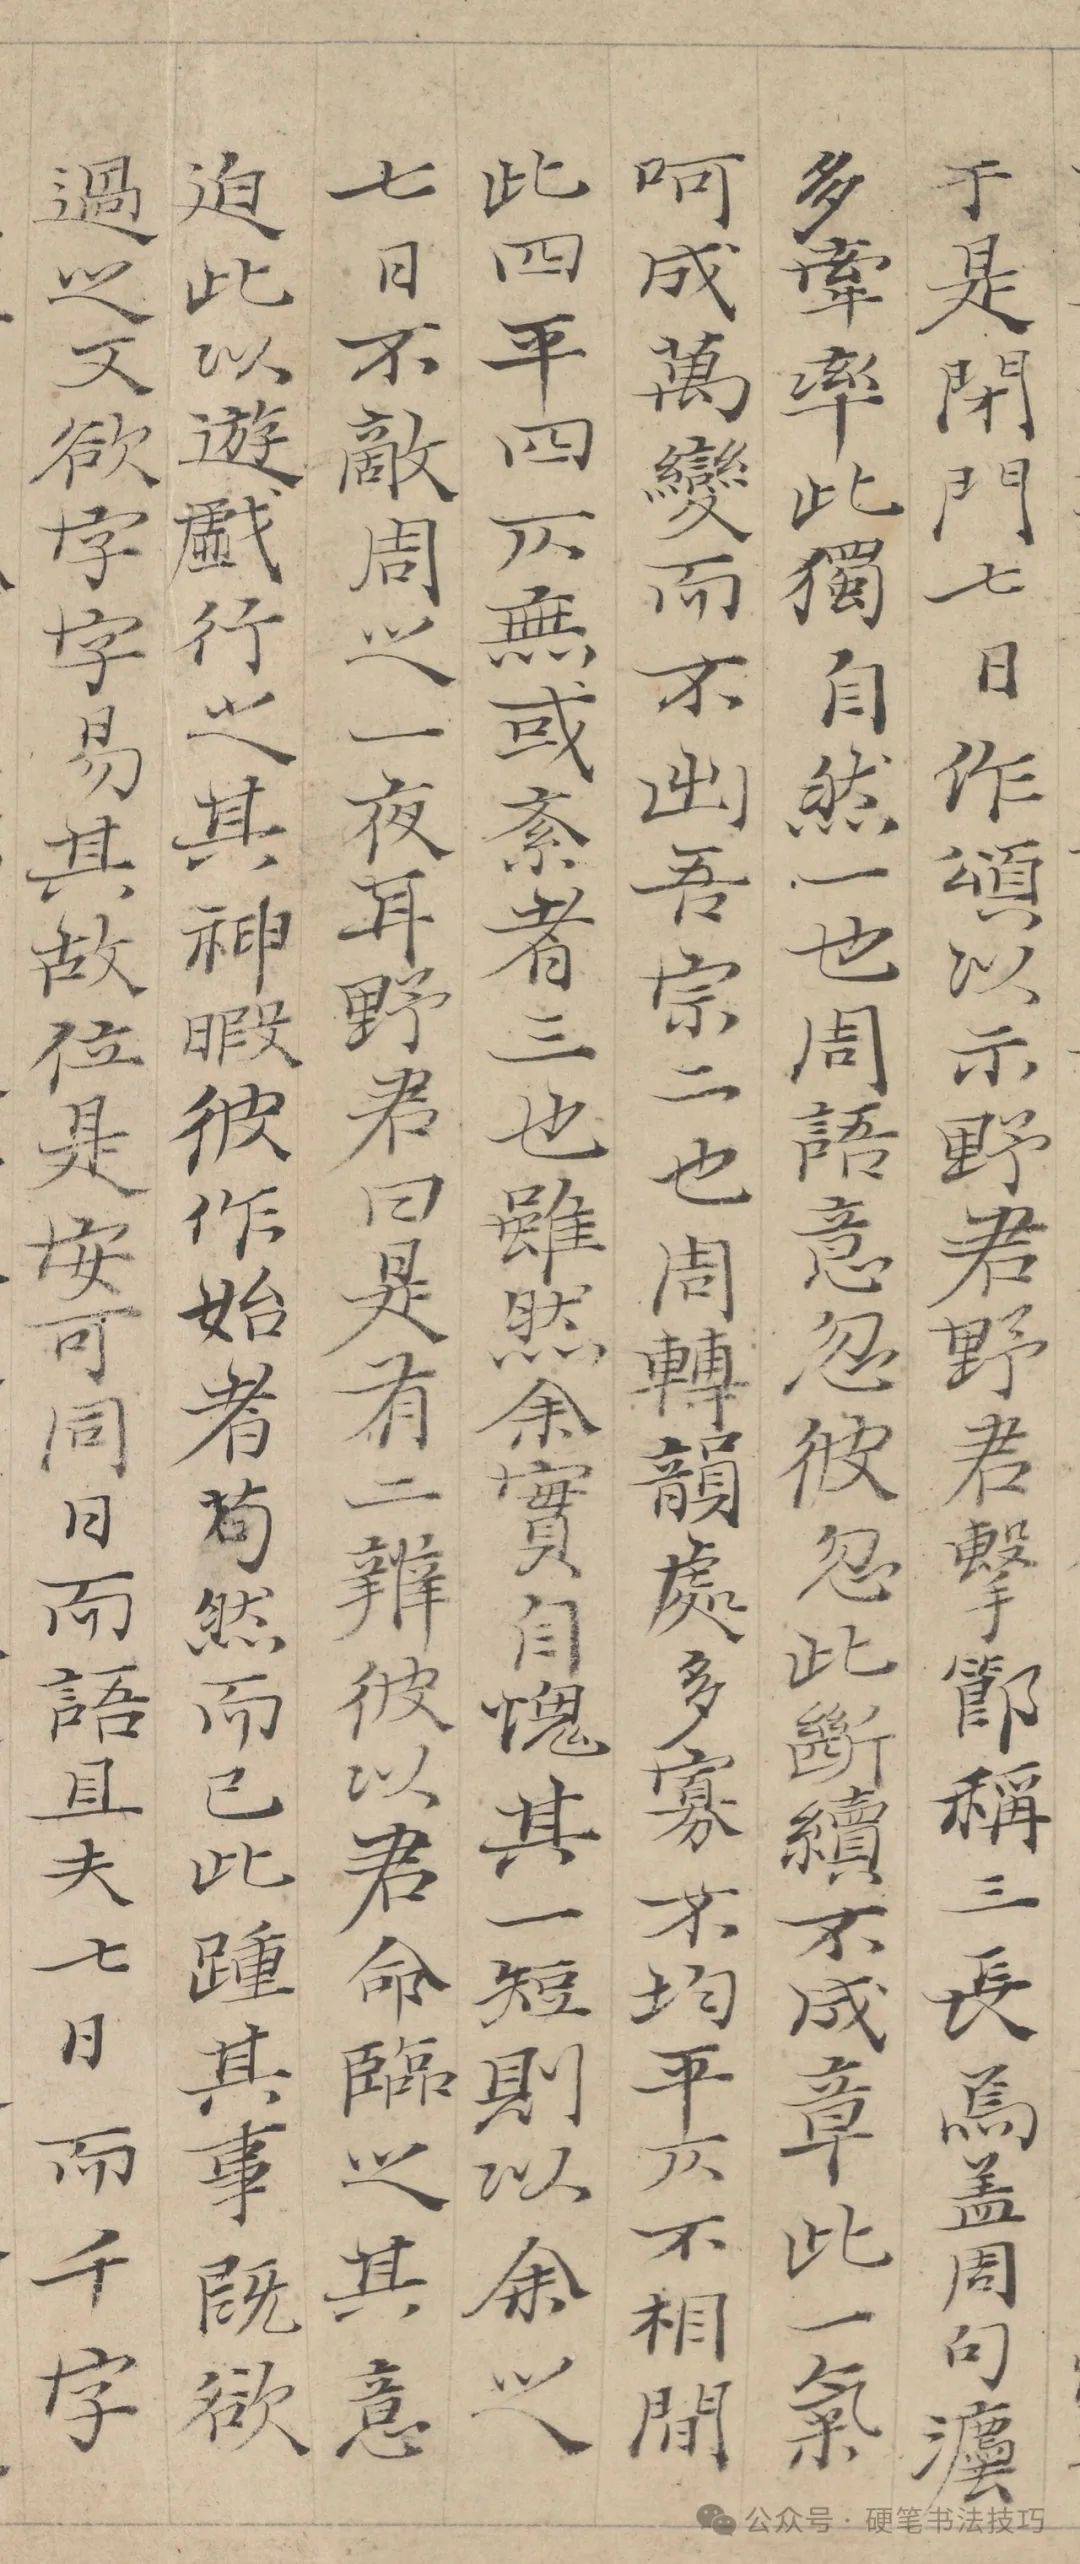 于是閉門七日作頌以示野君野君擊節稱三長焉盖周句灋
多牽率此獨自然一也周語意忽彼忽此斷續不成章此一氣
呵成萬變而不出吾宗二也周轉韻處多寡不均平仄不相間
此四平四仄無或紊者三也雖然余實自愧其一短則以余之
七日不敵周之一夜耳野君曰是有二辨彼以君命臨之其意
迫此以遊戲行之其神暇彼作始者苟然而已此踵其事既欲
過之又欲字字易其故位是安可同日而語且夫七日而千字
公众号·硬笔书法技巧